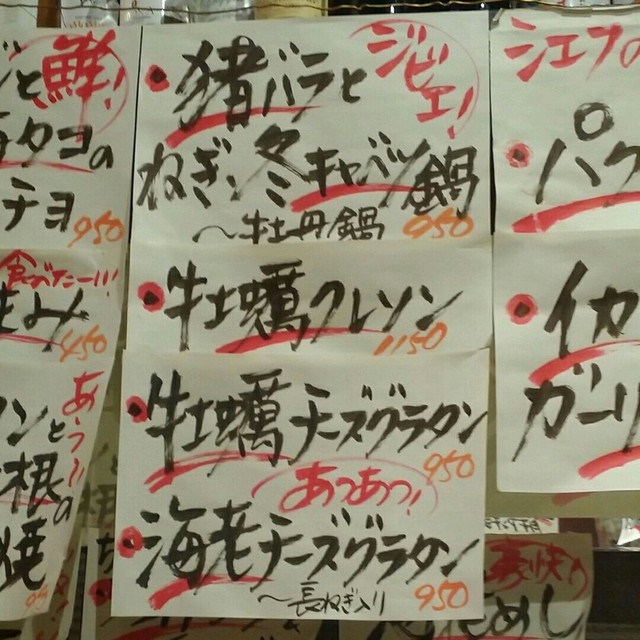 と鮮!
タコの
チョ
950
食べたー!!!
生み
450
あつ!!
ンと
根の
焼
ジビエ!
猪バラと
ねぎ、冬キャベツ鍋
～牡丹鍋 950
牡蠣クレソン
1150
牡蠣チーズグラタン
950
あつあつ!
海老チーズグラタン
～長ねぎ入り 950
江エフの
パク
イカ
ガーリ
めし